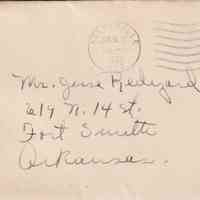 Mr. Jesse Redyard
619 N. 14 St.
Fort Smith
Arkansas.